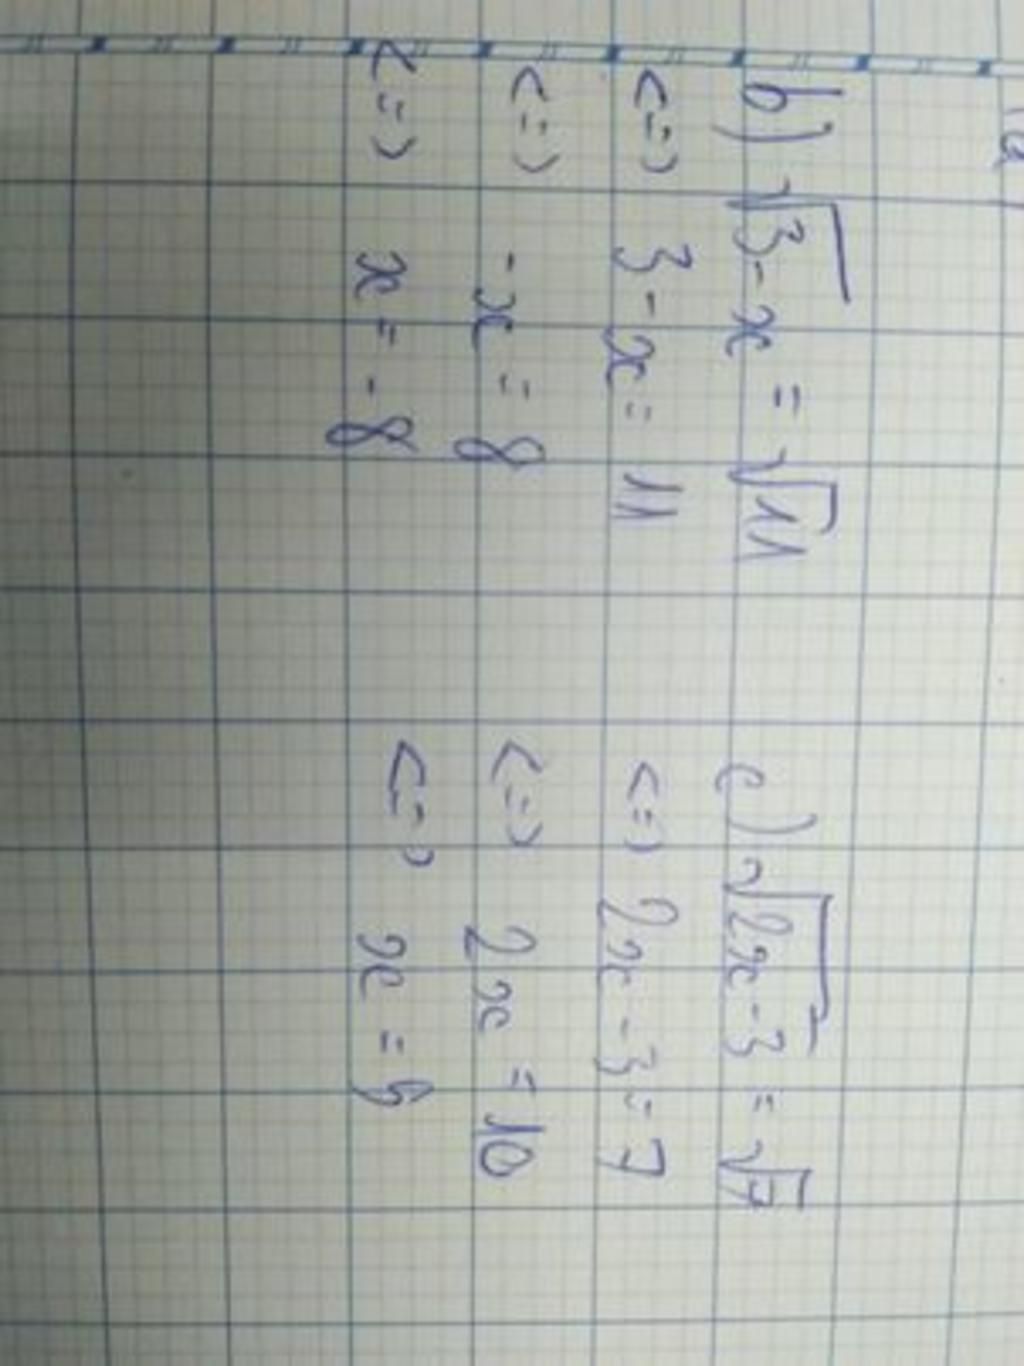 b) √3-x = √11
<=> 3-x = 11
<=> -x = 8
<=> x = -8
c) √2x-3 = √7
<=> 2x-3 = 7
<=> 2x = 10
<=> x =